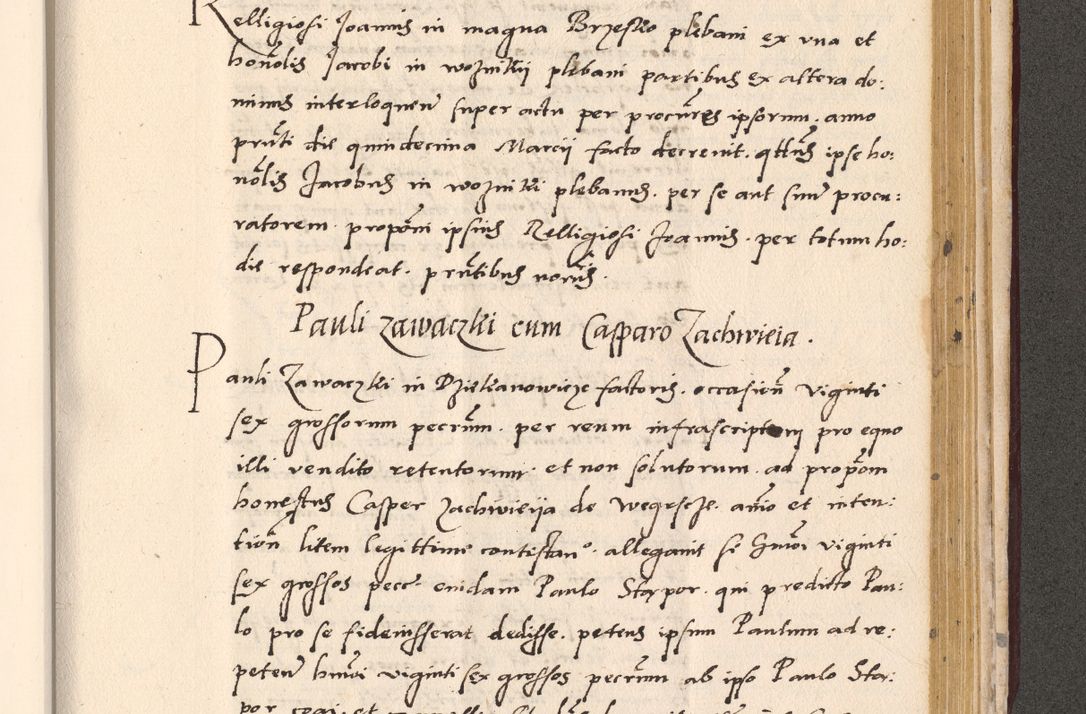 Relligiosi Joannis in magna Brzesko plebani ex vna et
honōlis Jacobi in woznikii plebani partibus ex altera do:
minus interloquens super actu per procūres ipsorum. anno
prn̄ti die quindecima Marcii facto decrevit. qttūs ipse ho:
nōlis Jacobus in wozniki plebanus. per se aut suū procu:
ratorem. propōni ipsius Relligiosi Joannis. per totum ho:
die respondeat. prn̄tibus
Pauli zawaczki cum Casparo Zachwieia.
Pauli Zawaczki in Dziekanowicze factoris. occasioñ viginti
sex grossorum pecūm. per reum infrascriptum pro equo
illi vendito retentorum. et non solutorum. ad propōm
honestus Casper Zachwieija de Wegrscze. aīo et inten:
tioñ litem legittime contestan. allegavit se hmōi viginti
sex grossos pecc. cuidam Paulo Starpor. qui predicto Pau:
lo pro se fideiusserat dedisse. petens ipsum Paulum ad re:
peten hmōi viginti sex grossos pecūm ab ipso Paulo Star:
por